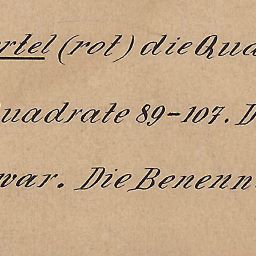 rtel (rot) die Qua
uadrate 89-107. D
war. Die Benenn